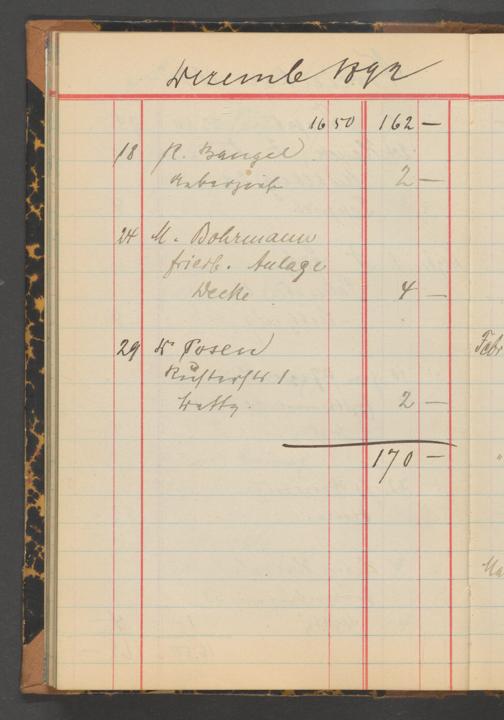 Decemb 1892
16 50 162 —
18 R. Bangel
Ueberzieh 2 —
24 M. Bohrmann
friedb. Anlage
Decke 4 —
29 Posen
1
2 —
170 —
Febr
Ma